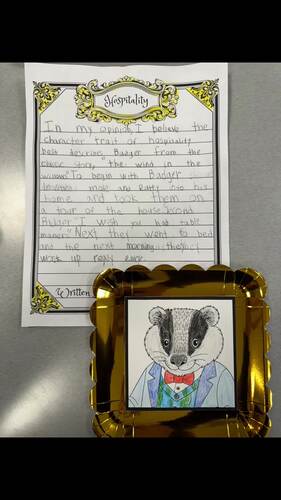 Hospitality
In my opinion, I believe the
character trait of hospitality
best describes Badger from the
classic story, "the wind in the
willows" To begin with Badger
invited mole and Ratty into his
home and took them on
a tour of the house second
Badger I wish you had table
maners Next they went to bed
and the next morning they
woke up really
Written